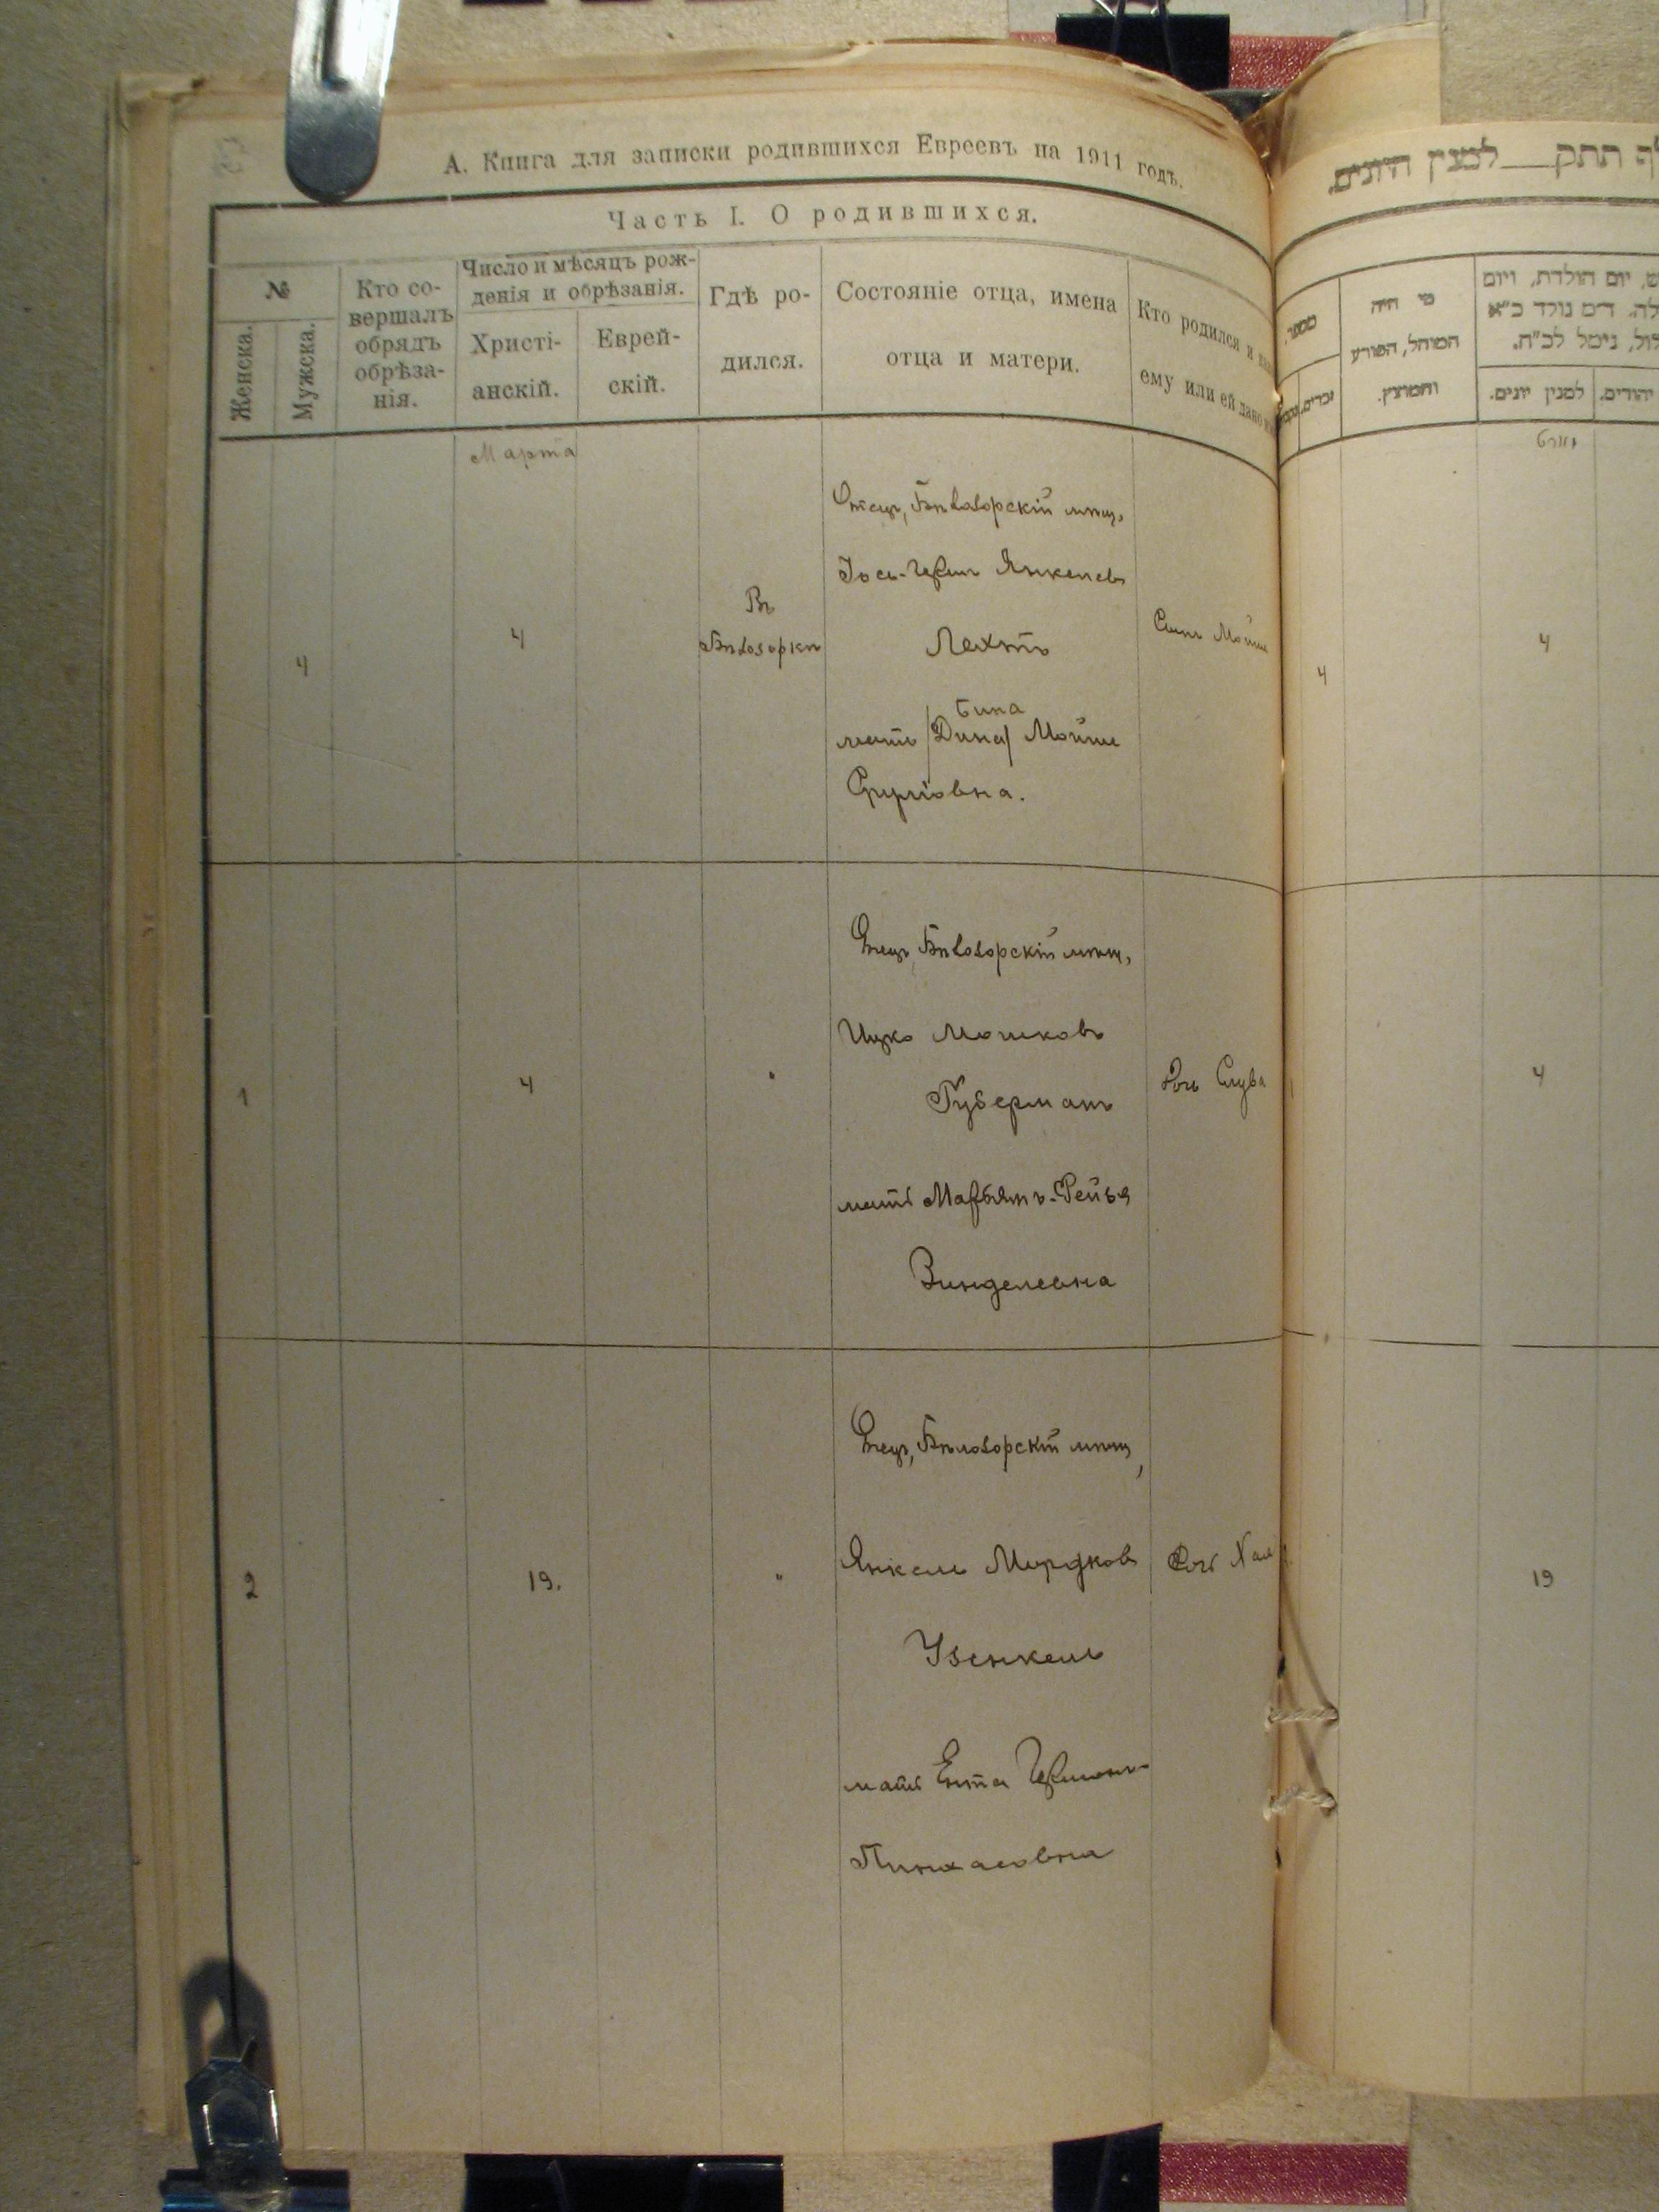 А. Книга для записки родившихся Евреевъ на 1911 годъ.
Часть I. О родившихся.
№
Женска.
Мужска.
Кто со-
вершалъ
обрядъ
обрѣза-
нія.
Число и мѣсяцъ рож-
денія и обрѣзанія.
Христі-
анскій.
Еврей-
скій.
Гдѣ ро-
дился.
Состояніе отца, имена
отца и матери.
Кто родился и
ему или ей дано
Марта
4
4
Въ
Бѣлозоркѣ
Отецъ, Бѣлозорскій мѣщ.
Янкелевъ
Лехтъ
Бина
мать Дина Мойше
Сруловна.
Сынъ Мойше
1
4
"
Отецъ, Бѣлозорскій мѣщ,
Ицко Мошковъ
Губерманъ
мать Марьямъ-Рейзя
Зинделевна
Дочь
2
19.
"
Отецъ, Бѣлозорскій мѣщ,
Янкель Мордковъ
мать Ента
Пинхасовна
Дочь
תתק למנין היונים.
מספר
זכרים.
מי היה
המוהל, הפורע
והמוצץ.
יום הולדת, ויום
נולד כ"א
נימל לכ"ח.
למנין יונים.
יהודים.
מארט
4
4
4
19